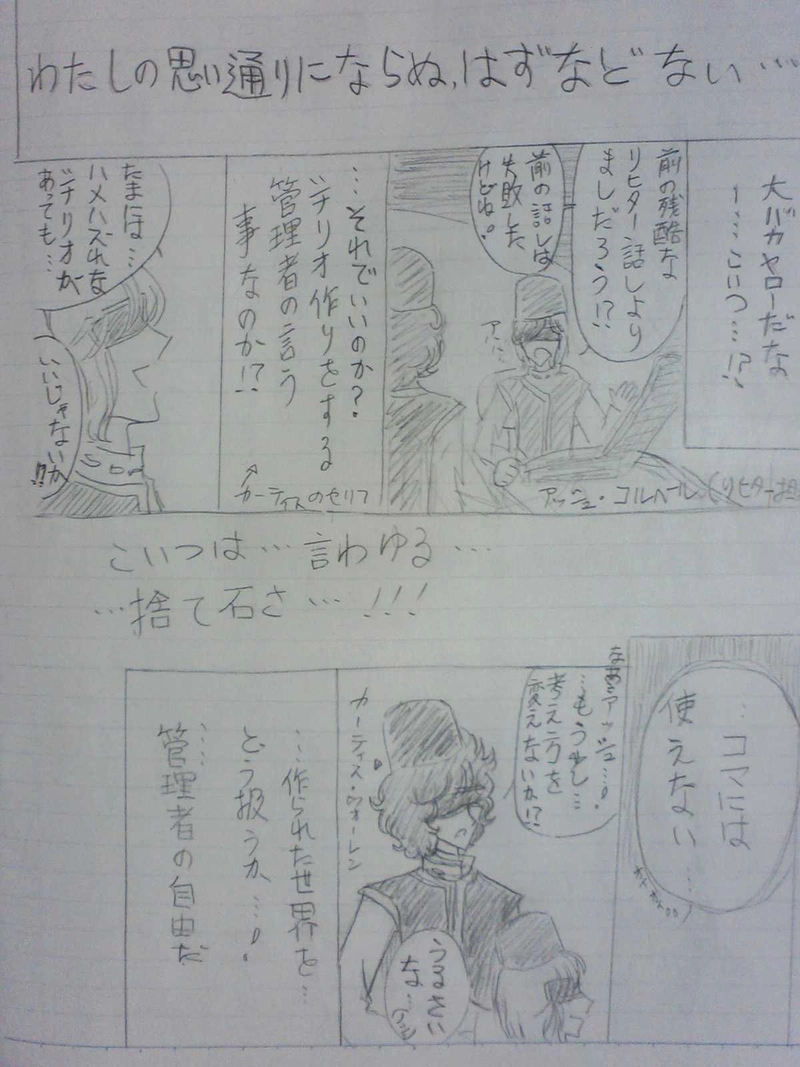 わたしの思い通りにならぬ、はずなどない…
大バカヤローだな
ー…こいつ…!?
前の残酷な
リヒター話しより
ましだろう!?
前の話しは
失敗した
けどね!
アッシュ・コルベール
…それでいいのか?
シナリオ作りをする
管理者の言う
事なのか!?
カーティスのセリフ
たまには…
ハメハズれな
シナリオが
あっても…
いいじゃないか
!?
こいつは…言わゆる…
…捨て石さ…!!!
…コマには
使えない…
なあ…アッシュ…!
…もう少し…
考え方を
変えないか!?
カーティス・ウォーレン
うるさい
な…
…作られた世界を…
どう扱うか…!
…管理者の自由だ